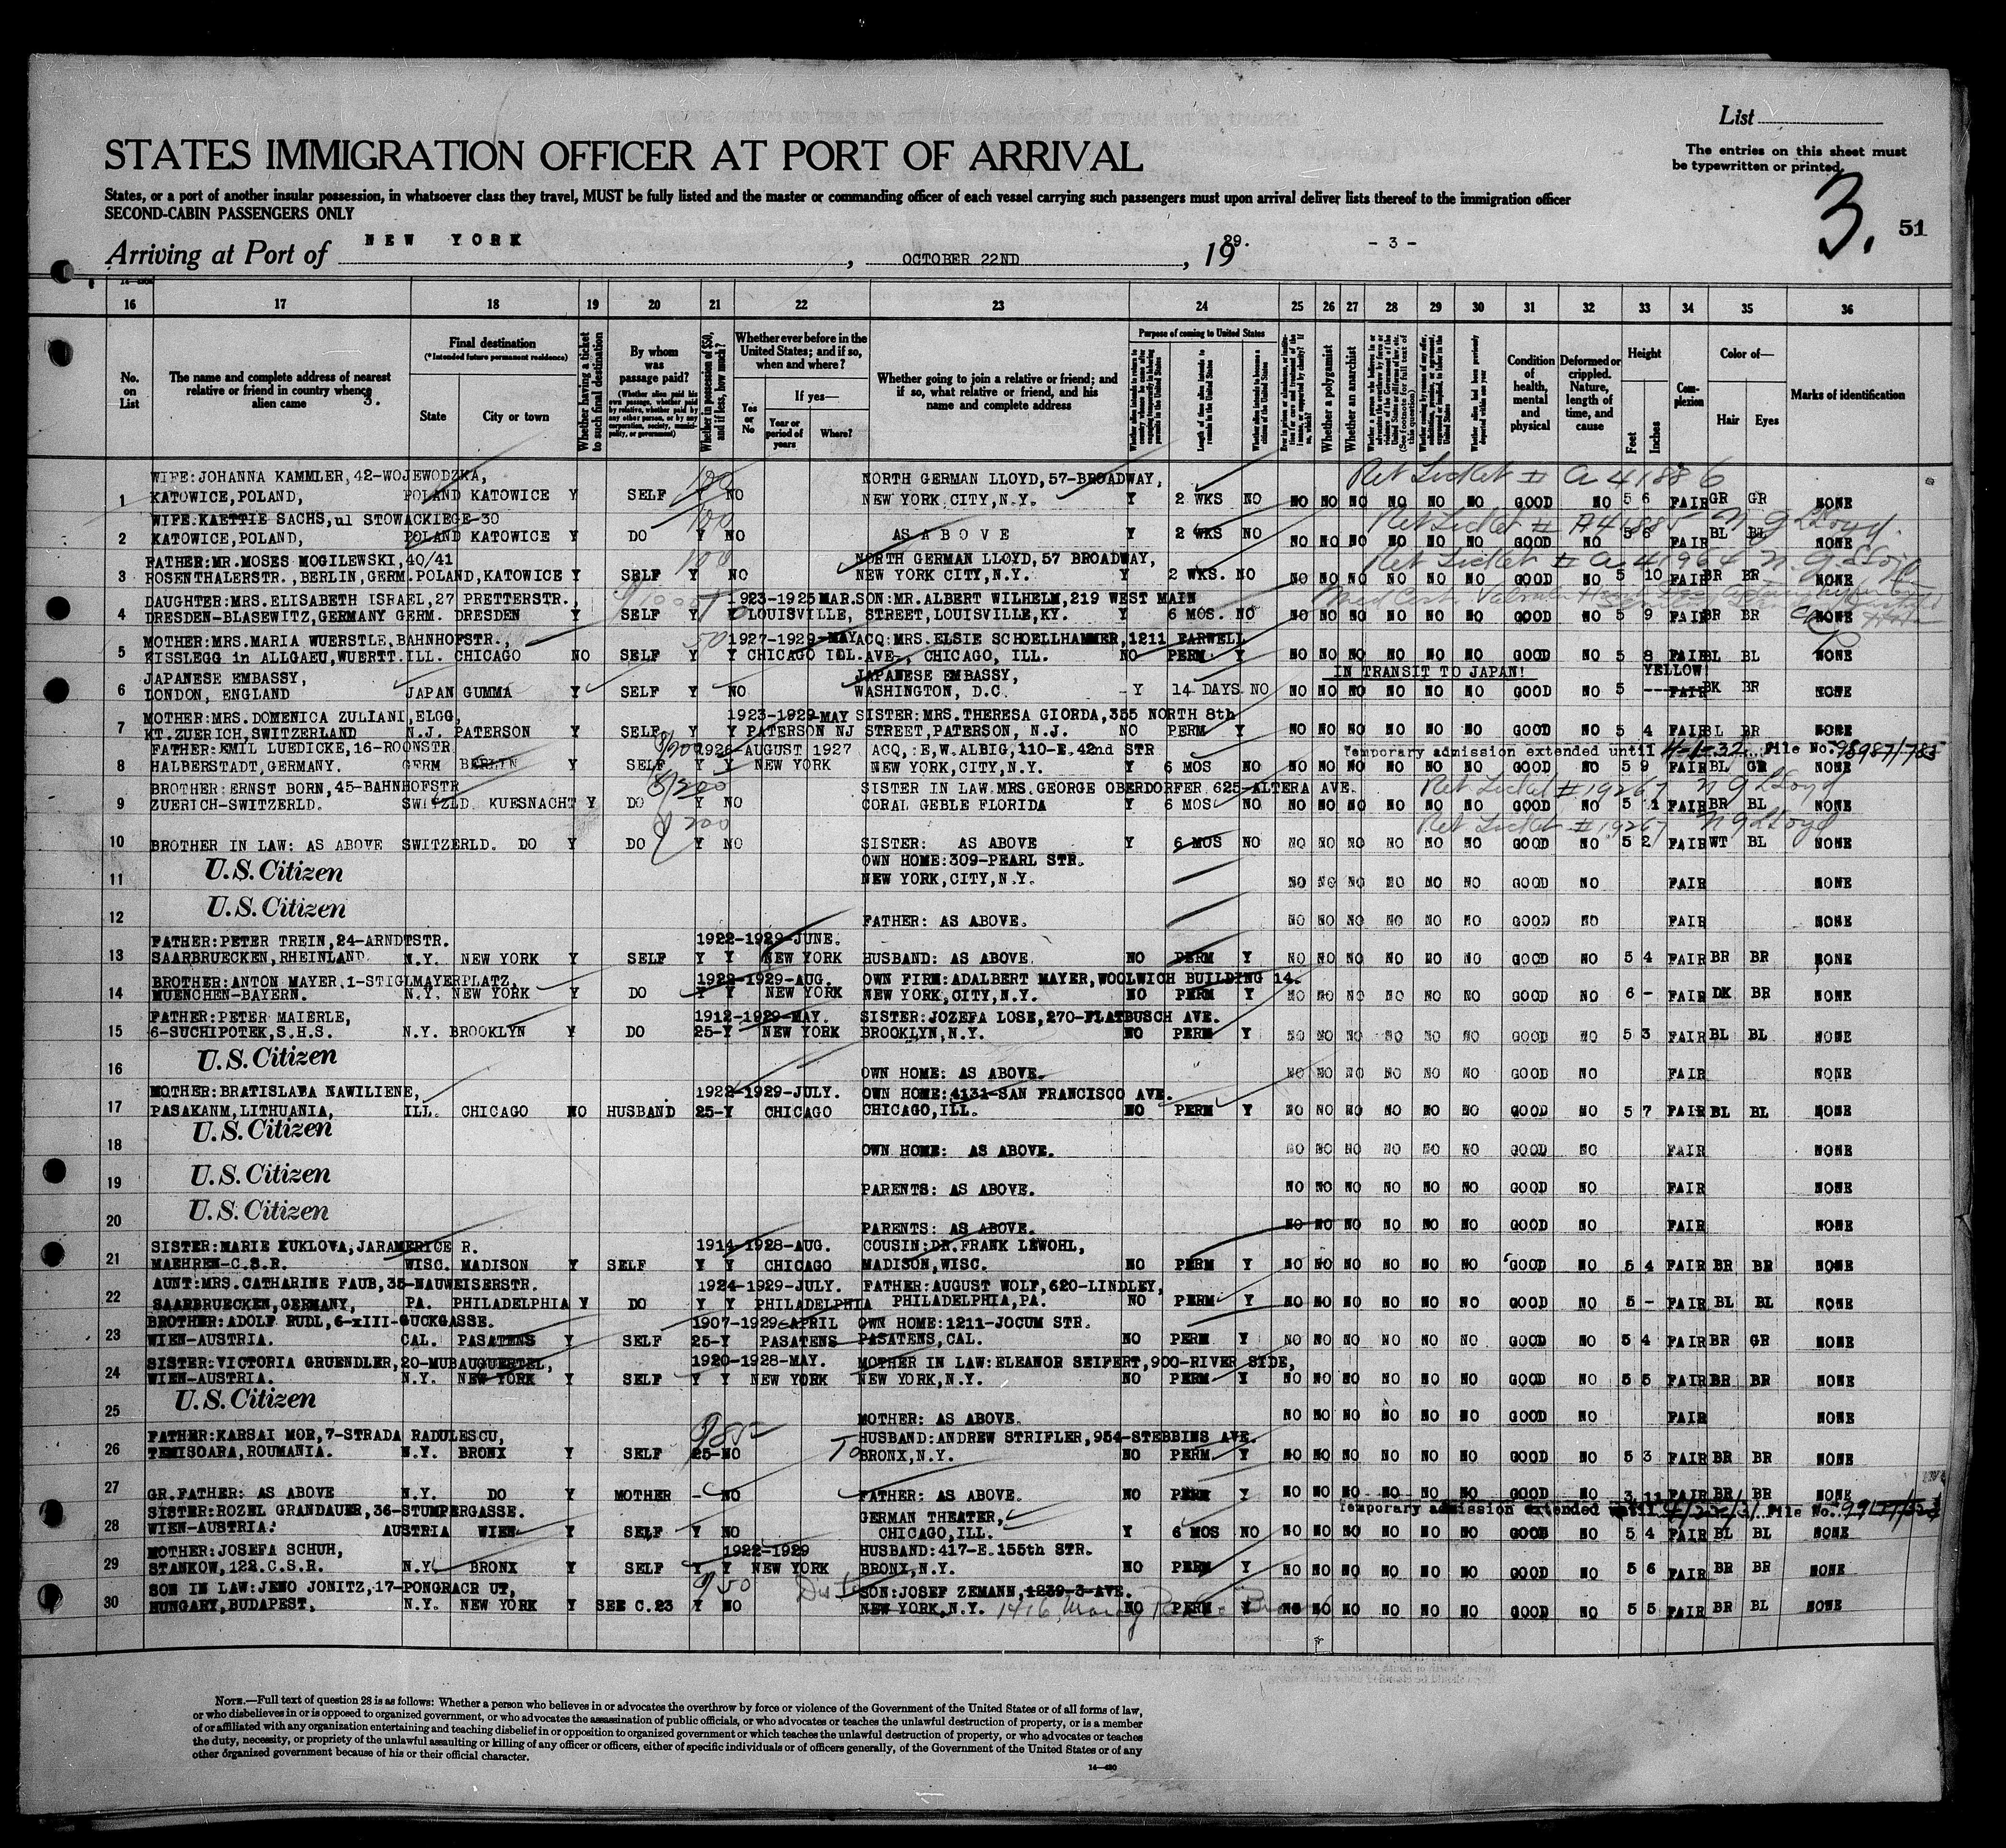 List
STATES IMMIGRATION OFFICER AT PORT OF ARRIVAL
The entries on this sheet must
be typewritten or printed.
States, or a port of another insular possession, in whatsoever class they travel, MUST be fully listed and the master or commanding officer of each vessel carrying such passengers must upon arrival deliver lists thereof to the immigration officer
SECOND-CABIN PASSENGERS ONLY
3. 51
Arriving at Port of NEW YORK, OCTOBER 22ND, 1929. - 3 -
16 17 18 19 20 21 22 23 24 25 26 27 28 29 30 31 32 33 34 35 36
No. on List
The name and complete address of nearest relative or friend in country whence alien came
3.
Final destination
(*Intended future permanent residence)
State City or town
Whether having a ticket to such final destination
By whom was passage paid?
(Whether alien paid his own passage, whether paid by relative, whether paid by any other person, or by any corporation, society, municipality, or government)
Whether in possession of $50, and if less, how much?
Whether ever before in the United States; and if so, when and where?
Yes or No
If yes—
Year or period of years Where?
Whether going to join a relative or friend; and if so, what relative or friend, and his name and complete address
Purpose of coming to United States
Whether a polygamist
Whether an anarchist
Condition of health, mental and physical
Deformed or crippled. Nature, length of time, and cause
Height
Feet Inches
Complexion
Color of—
Hair Eyes
Marks of identification
WIFE:JOHANNA KAMMLER,42-WOJEWODZKA, 100 NORTH GERMAN LLOYD,57-BROADWAY, Ret Ticket # A 41886
1 KATOWICE,POLAND, POLAND KATOWICE Y SELF Y NO NEW YORK CITY,N.Y. Y 2 WKS NO NO NO NO NO NO NO GOOD NO 5 6 FAIR GR GR NONE
WIFE.KAETTIE SACHS,ul STOWACKIEGE-30 100 Ret Ticket # A41885 N G Lloyd.
2 KATOWICE,POLAND, POLAND KATOWICE Y DO Y NO AS ABOVE Y 2 WKS NO NO NO NO NO NO NO GOOD NO 5 6 FAIR BL BL NONE
FATHER:MR.MOSES MOGILEWSKI,40/41 100 NORTH GERMAN LLOYD,57 BROADWAY, Ret Ticket # A 41964 N.G. Lloyd
3 ROSENTHALERSTR.,BERLIN,GERM.POLAND,KATOWICE Y SELF Y NO NEW YORK CITY,N.Y. Y 2 WKS. NO NO NO NO NO NO NO GOOD NO 5 10 FAIR BR BR NONE
DAUGHTER:MRS.ELISABETH ISRAEL,27 PRETTERSTR., 1923-1925 MAR.SON:MR.ALBERT WILHELM,219 WEST MAIN
4 DRESDEN-BLASEWITZ,GERMANY GERM. DRESDEN Y SELF Y LOUISVILLE, STREET,LOUISVILLE,KY. Y 6 MOS. NO NO NO NO NO NO NO GOOD NO 5 9 FAIR BR BR NONE
MOTHER:MRS.MARIA WUERSTLE,BAHNHOFSTR., 1927-1929-MAY ACQ:MRS.ELSIE SCHOELLHAMMER,1211 FARWELL
5 KISSLEGG in ALLGAEU,WUERTT.ILL. CHICAGO NO SELF Y Y CHICAGO ILL.AVE-, CHICAGO, ILL. NO PERM. Y NO NO NO NO NO NO GOOD NO 5 8 FAIR BL BL NONE
JAPANESE EMBASSY, JAPANESE EMBASSY, IN TRANSIT TO JAPAN! YELLOW!
6 LONDON, ENGLAND JAPAN GUMMA Y SELF Y NO WASHINGTON, D.C. -Y 14 DAYS NO NO NO NO NO NO NO GOOD NO 5 --- FAIR BK BR NONE
MOTHER:MRS.DOMENICA ZULIANI,ELGG, 1923-1929-MAY SISTER:MRS.THERESA GIORDA,355 NORTH 8th
7 KT.ZUERICH,SWITZERLAND N.J. PATERSON Y SELF Y Y PATERSON NJ STREET,PATERSON, N.J. NO PERM Y NO NO NO NO NO NO GOOD NO 5 4 FAIR BL BR NONE
FATHER:EMIL LUEDICKE,16-ROONSTR 1926-AUGUST 1927 ACQ,:E,W.ALBIG,110-E.42nd STR Temporary admission extended until 4-1-32 File No. 98987/785
8 HALBERSTADT,GERMANY. GERM BERLIN Y SELF Y Y NEW YORK NEW YORK,CITY,N.Y. Y 6 MOS NO NO NO NO NO NO NO GOOD NO 5 9 FAIR BL GR NONE
BROTHER:ERNST BORN,45-BAHNHOFSTR SISTER IN LAW.MRS.GEORGE OBERDORFER 625-ALTERA AVE. Ret Ticket # 19267 N G Lloyd
9 ZUERICH-SWITZERLD. SWITZLD. KUESNACHT Y DO Y NO CORAL GEBLE FLORIDA Y 6 MOS NO NO NO NO NO NO NO GOOD NO 5 1 FAIR BR BL NONE
200 Ret Ticket # 19267 N G Lloyd
10 BROTHER IN LAW: AS ABOVE SWITZERLD. DO Y DO Y NO SISTER: AS ABOVE Y 6 MOS NO NO NO NO NO NO NO GOOD NO 5 2 FAIR WT BL NONE
U.S. Citizen OWN HOME:309-PEARL STR.
11 NEW YORK,CITY,N.Y. NO NO NO NO NO NO GOOD NO FAIR NONE
U.S. Citizen
12 FATHER: AS ABOVE. NO NO NO NO NO NO GOOD NO FAIR NONE
FATHER:PETER TREIN,24-ARNDTSTR. 1922-1929-JUNE.
13 SAARBRUECKEN,RHEINLAND. N.Y. NEW YORK Y SELF Y Y NEW YORK HUSBAND: AS ABOVE. NO PERM Y NO NO NO NO NO NO GOOD NO 5 4 FAIR BR BR NONE
BROTHER:ANTON MAYER,1-STIGLMAYERPLATZ, 1922-1929-AUG. OWN FIRM:ADALBERT MAYER,WOOLWICH BUILDING 14.
14 MUENCHEN-BAYERN. N.Y. NEW YORK Y DO Y Y NEW YORK NEW YORK,CITY,N.Y. NO PERM Y NO NO NO NO NO NO GOOD NO 6 - FAIR DK BR NONE
FATHER:PETER MAIERLE, 1912-1929-MAY. SISTER:JOZEFA LOSE,270-FLATBUSCH AVE.
15 6-SUCHIPOTEK,S.H.S. N.Y. BROOKLYN Y DO 25-Y NEW YORK BROOKLYN,N.Y. NO PERM Y NO NO NO NO NO NO GOOD NO 5 3 FAIR BL BL NONE
U.S. Citizen
16 OWN HOME: AS ABOVE. NO NO NO NO NO NO GOOD NO FAIR NONE
MOTHER:BRATISLABA NAWILIENE, 1922-1929-JULY. OWN HOME:4131-SAN FRANCISCO AVE.
17 PASAKANM,LITHUANIA, ILL. CHICAGO NO HUSBAND 25-Y CHICAGO CHICAGO,ILL. NO PERM Y NO NO NO NO NO NO GOOD NO 5 7 FAIR BL BL NONE
U.S. Citizen
18 OWN HOME: AS ABOVE. NO NO NO NO NO NO GOOD NO FAIR NONE
U.S. Citizen
19 PARENTS: AS ABOVE. NO NO NO NO NO NO GOOD NO FAIR NONE
U.S. Citizen
20 PARENTS: AS ABOVE. NO NO NO NO NO NO GOOD NO FAIR NONE
SISTER:MARIE KUKLOVA,JARAMERICE R. 1914-1928-AUG. COUSIN:DR.FRANK LEWOHL,
21 MAEHREN-C.S.R. WISC. MADISON Y SELF Y Y CHICAGO MADISON,WISC. NO PERM Y NO NO NO NO NO NO GOOD NO 5 4 FAIR BR BR NONE
AUNT:MRS.CATHARINE FAUB,35-NAUWEISERSTR. 1924-1929-JULY. FATHER:AUGUST WOLF,620-LINDLEY,
22 SAARBRUECKEN,GERMANY, PA. PHILADELPHIA Y DO Y Y PHILADELPHIA PHILADELPHIA,PA. NO PERM Y NO NO NO NO NO NO GOOD NO 5 - FAIR BL BL NONE
BROTHER:ADOLF RUDL,6-xIII-GUCKGASSE. 1907-1929-APRIL OWN HOME:1211-JOCUM STR.
23 WIEN-AUSTRIA. CAL. PASATENS Y SELF 25-Y PASATENS PASATENS,CAL. NO PERM Y NO NO NO NO NO NO GOOD NO 5 4 FAIR BR GR NONE
SISTER:VICTORIA GRUENDLER,20-MUBAUGUERTEL, 1920-1928-MAY. MOTHER IN LAW:ELEANOR SEIFERT,900-RIVER SIDE,
24 WIEN-AUSTRIA. N.Y. NEW YORK Y SELF Y Y NEW YORK NEW YORK,N.Y. NO PERM Y NO NO NO NO NO NO GOOD NO 5 5 FAIR BR BR NONE
U.S. Citizen
25 MOTHER: AS ABOVE. NO NO NO NO NO NO GOOD NO FAIR NONE
FATHER:KARSAI MOR,7-STRADA RADULESCU, HUSBAND:ANDREW STRIFLER,954-STEBBINS AVE.
26 TEMISOARA,ROUMANIA. N.Y. BRONX Y SELF 25-NO To BRONX,N.Y. NO PERM Y NO NO NO NO NO NO GOOD NO 5 3 FAIR BR BR NONE
27 GR.FATHER: AS ABOVE N.Y. DO Y MOTHER - NO FATHER: AS ABOVE. NO PERM Y NO NO NO NO NO NO GOOD NO 3 11 FAIR BR BR NONE
SISTER:ROZEL GRANDAUER,36-STUMPERGASSE. GERMAN THEATER, Temporary admission extended until File No.
28 WIEN-AUSTRIA. AUSTRIA WIEN Y SELF Y NO CHICAGO,ILL. Y 6 MOS NO NO NO NO NO NO NO GOOD NO 5 4 FAIR BL BL NONE
MOTHER:JOSEFA SCHUH, 1922-1929 HUSBAND:417-E.155th STR.
29 STANKOW,122.C.S.R. N.Y. BRONX Y SELF Y Y NEW YORK BRONX,N.Y. NO PERM Y NO NO NO NO NO NO GOOD NO 5 6 FAIR BR BR NONE
SON IN LAW:JENO JONITZ,17-PONGRACR UT, 950 SON:JOSEF ZEMANN,1239-3-AVE.
30 HUNGARY,BUDAPEST, N.Y. NEW YORK Y SEE C.23 Y NO NEW YORK,N.Y. 1416 NO PERM Y NO NO NO NO NO NO GOOD NO 5 5 FAIR BR BL NONE
NOTE.—Full text of question 28 is as follows: Whether a person who believes in or advocates the overthrow by force or violence of the Government of the United States or of all forms of law,
or who disbelieves in or is opposed to organized government, or who advocates the assassination of public officials, or who advocates or teaches the unlawful destruction of property, or is a member
of or affiliated with any organization entertaining and teaching disbelief in or opposition to organized government or which teaches the unlawful destruction of property, or who advocates or teaches
the duty, necessity, or propriety of the unlawful assaulting or killing of any officer or officers, either of specific individuals or of officers generally, of the Government of the United States or of any
other organized government because of his or their official character.
14—420